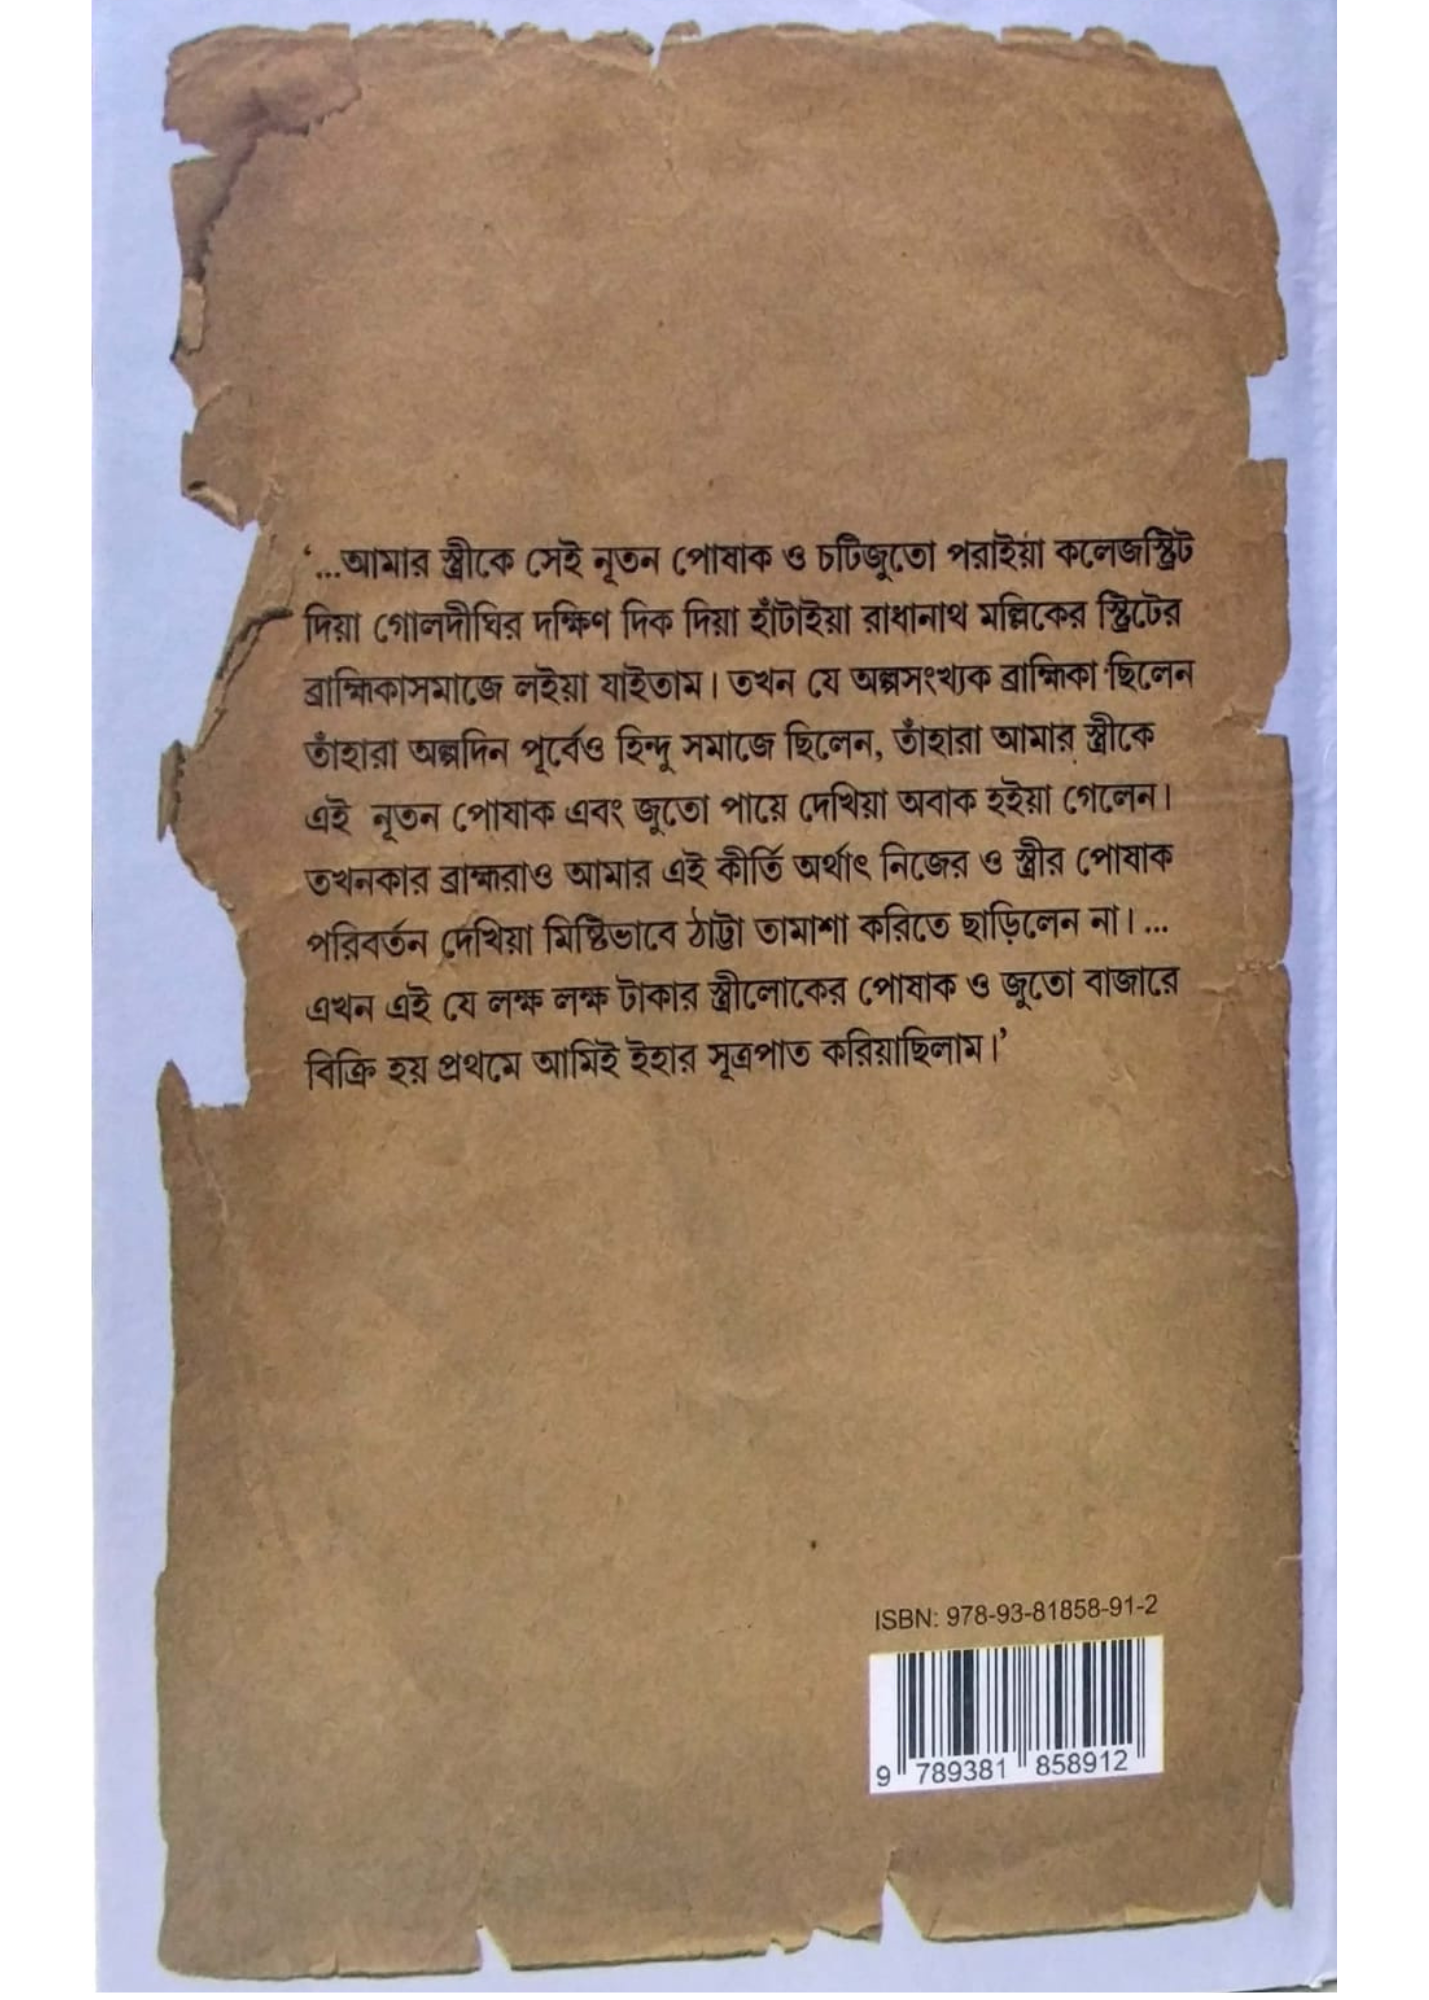 ‘...আমার স্ত্রীকে সেই নূতন পোষাক ও চটিজুতো পরাইয়া কলেজস্ট্রিট
দিয়া গোলদীঘির দক্ষিণ দিক দিয়া হাঁটাইয়া রাধানাথ মল্লিকের স্ট্রিটের
ব্রাহ্মিকাসমাজে লইয়া যাইতাম। তখন যে অল্পসংখ্যক ব্রাহ্মিকা ছিলেন
তাঁহারা অল্পদিন পূর্বেও হিন্দু সমাজে ছিলেন, তাঁহারা আমার স্ত্রীকে
এই নূতন পোষাক এবং জুতো পায়ে দেখিয়া অবাক হইয়া গেলেন।
তখনকার ব্রাহ্মরাও আমার এই কীর্তি অর্থাৎ নিজের ও স্ত্রীর পোষাক
পরিবর্তন দেখিয়া মিষ্টিভাবে ঠাট্টা তামাশা করিতে ছাড়িলেন না। ...
এখন এই যে লক্ষ লক্ষ টাকার স্ত্রীলোকের পোষাক ও জুতো বাজারে
বিক্রি হয় প্রথমে আমিই ইহার সূত্রপাত করিয়াছিলাম।’
ISBN: 978-93-81858-91-2
9 789381 858912